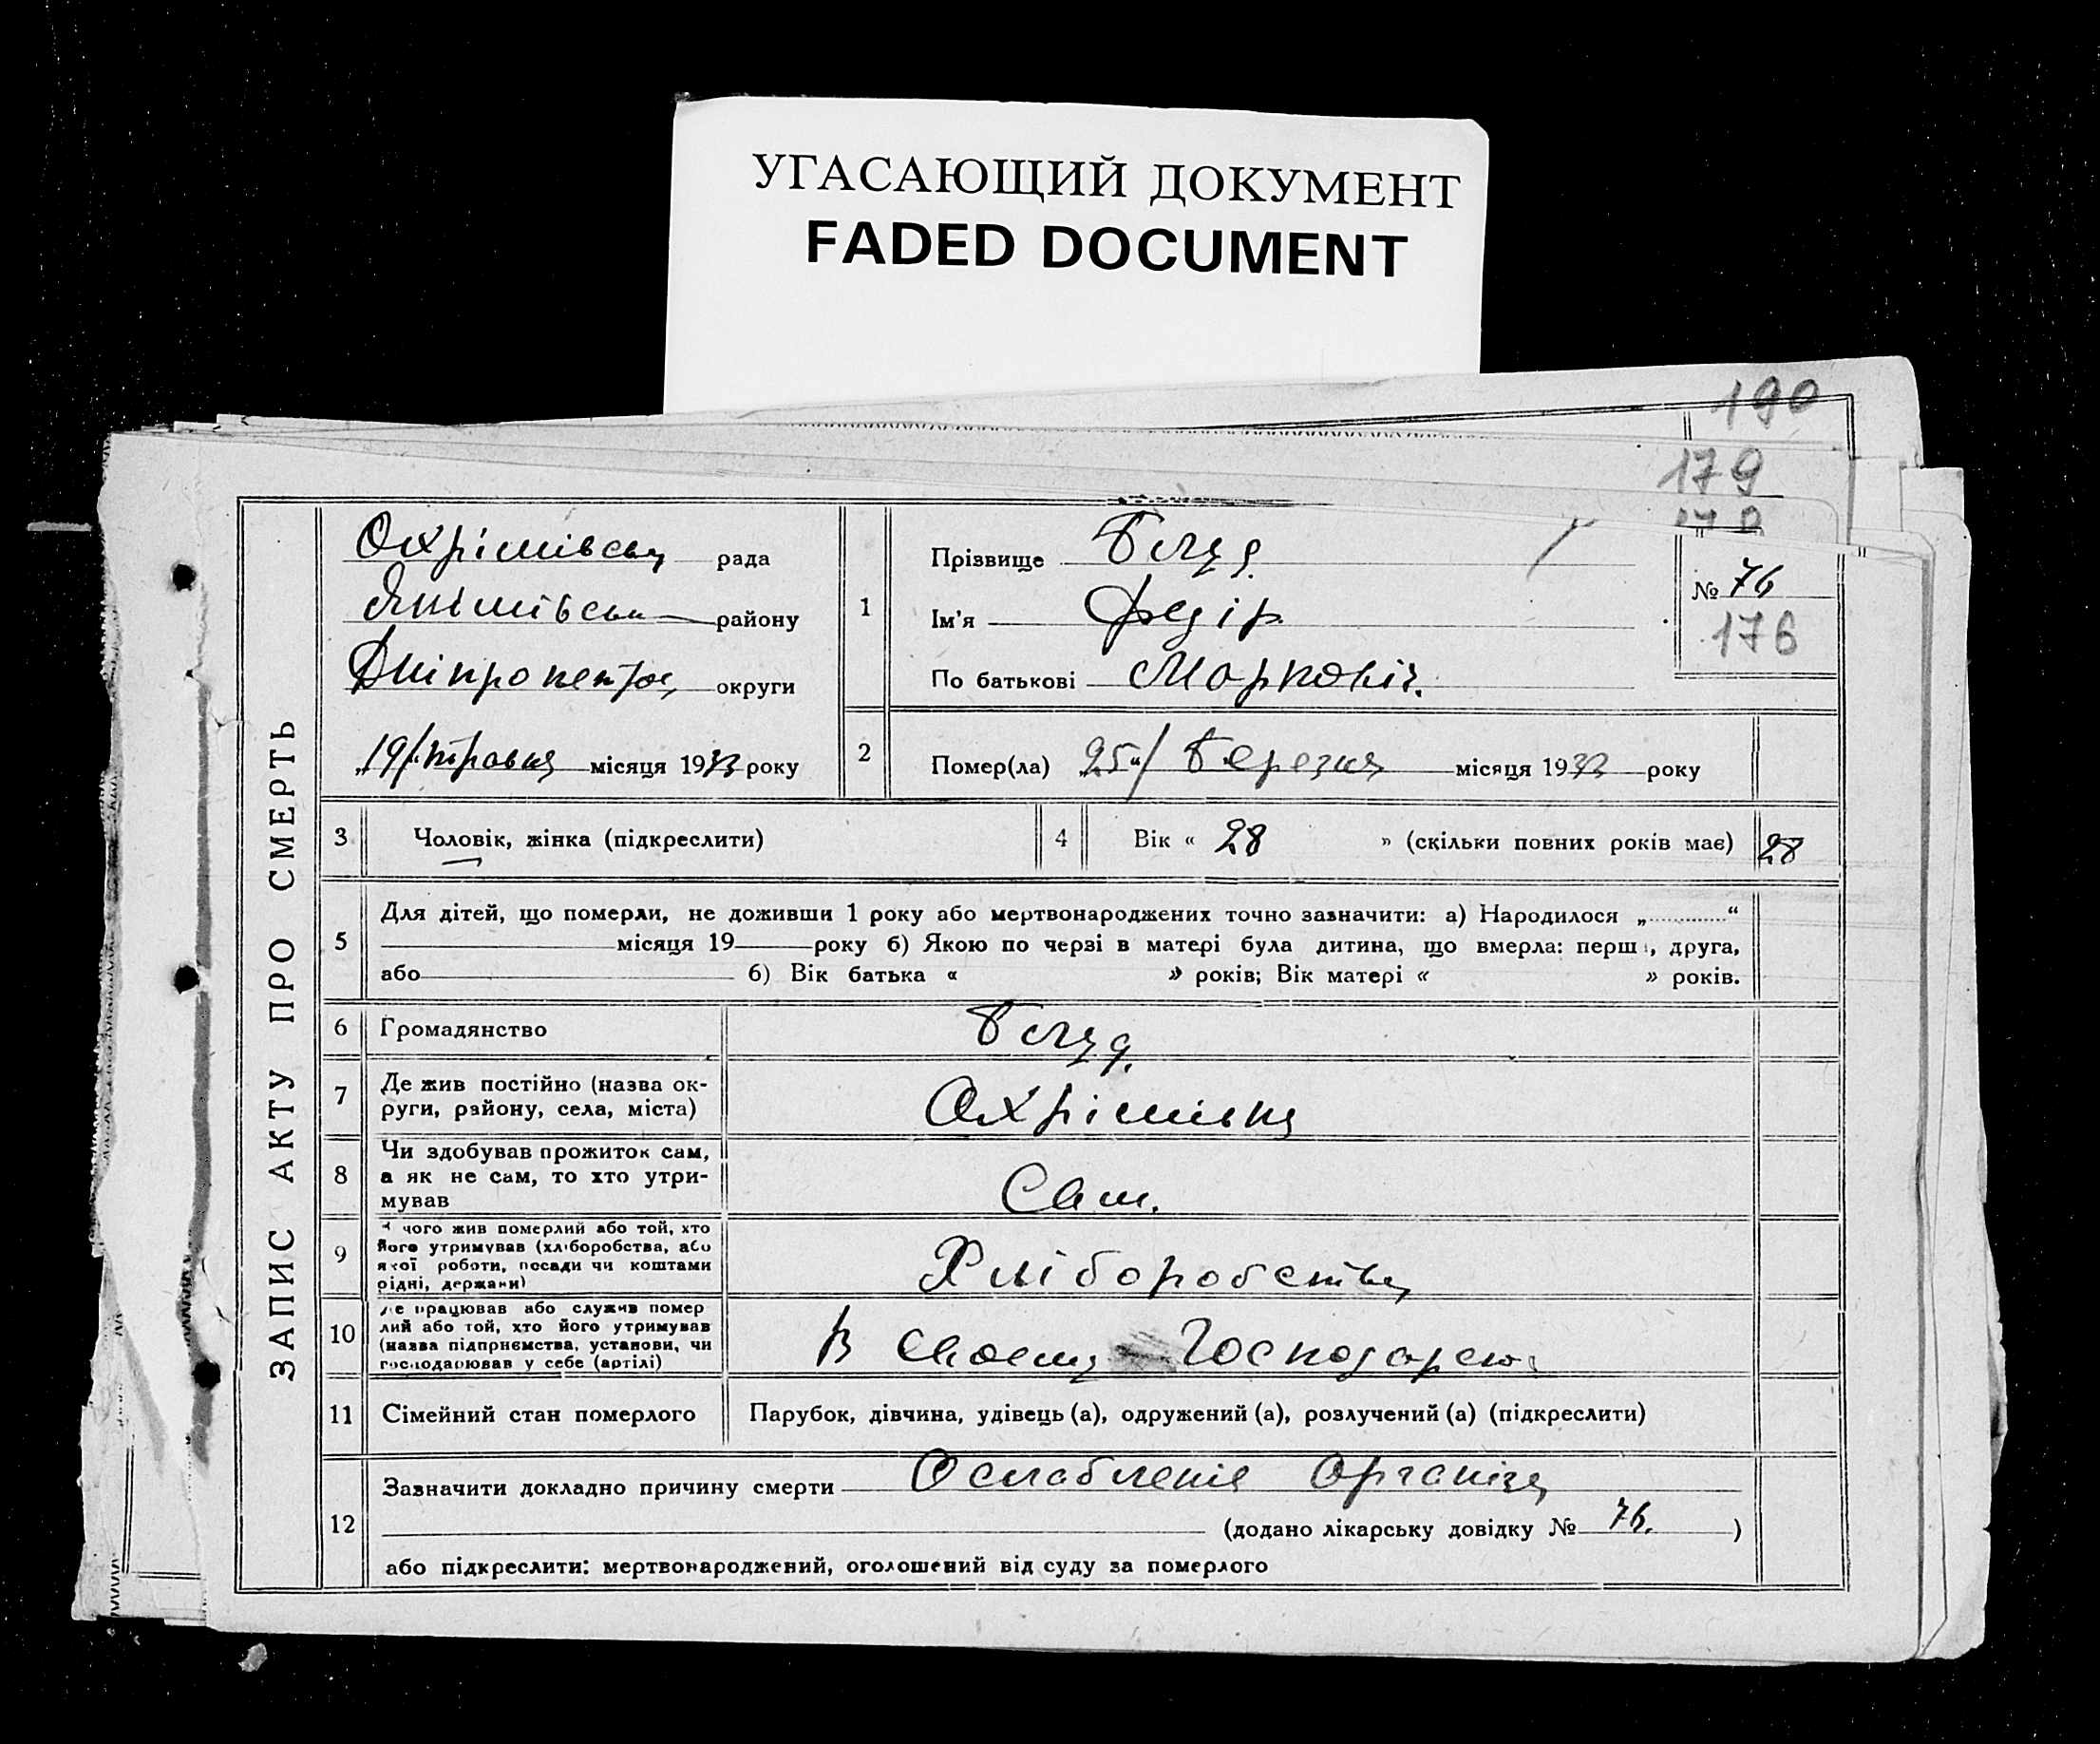 УГАСАЮЩИЙ ДОКУМЕНТ
FADED DOCUMENT
190
179
178
ЗАПИС АКТУ ПРО СМЕРТЬ
Охрімівська рада
Якимівськ району
Дніпропетров. округи
„19/травня місяця 1933 року
1
Прізвище Білуд
Ім'я Федір
По батькові Маркович.
№ 76
176
2
Помер(ла) 25"/ Березня місяця 1933 року
3 Чоловік, жінка (підкреслити)
4 Вік « 28 » (скільки повних років має) 28
5 Для дітей, що померли, не доживши 1 року або мертвонароджених точно зазначити: а) Народилося „ “
місяця 19 року б) Якою по черзі в матері була дитина, що вмерла: перш, друга,
або б) Вік батька « » років; Вік матері « » років.
6 Громадянство
7 Де жив постійно (назва ок-
руги, району, села, міста) Охрімівка
8 Чи здобував прожиток сам,
а як не сам, то хто утри-
мував Сам.
9 чого жив померлий або той, хто
його утримував (хліборобства, або
якої роботи, посади чи коштами
рідні, держави) Хліборобства
10 Де працював або служив помер
лий або той, хто його утримував
(назва підприємства, установи, чи
господарював у себе (артілі) В своему Господарстві
11 Сімейний стан померлого Парубок, дівчина, удівець (а), одружений (а), розлучений (а) (підкреслити)
12 Зазначити докладно причину смерти Ослабленіє Організа
(додано лікарську довідку № 76. )
або підкреслити: мертвонароджений, оголошений від суду за померлого